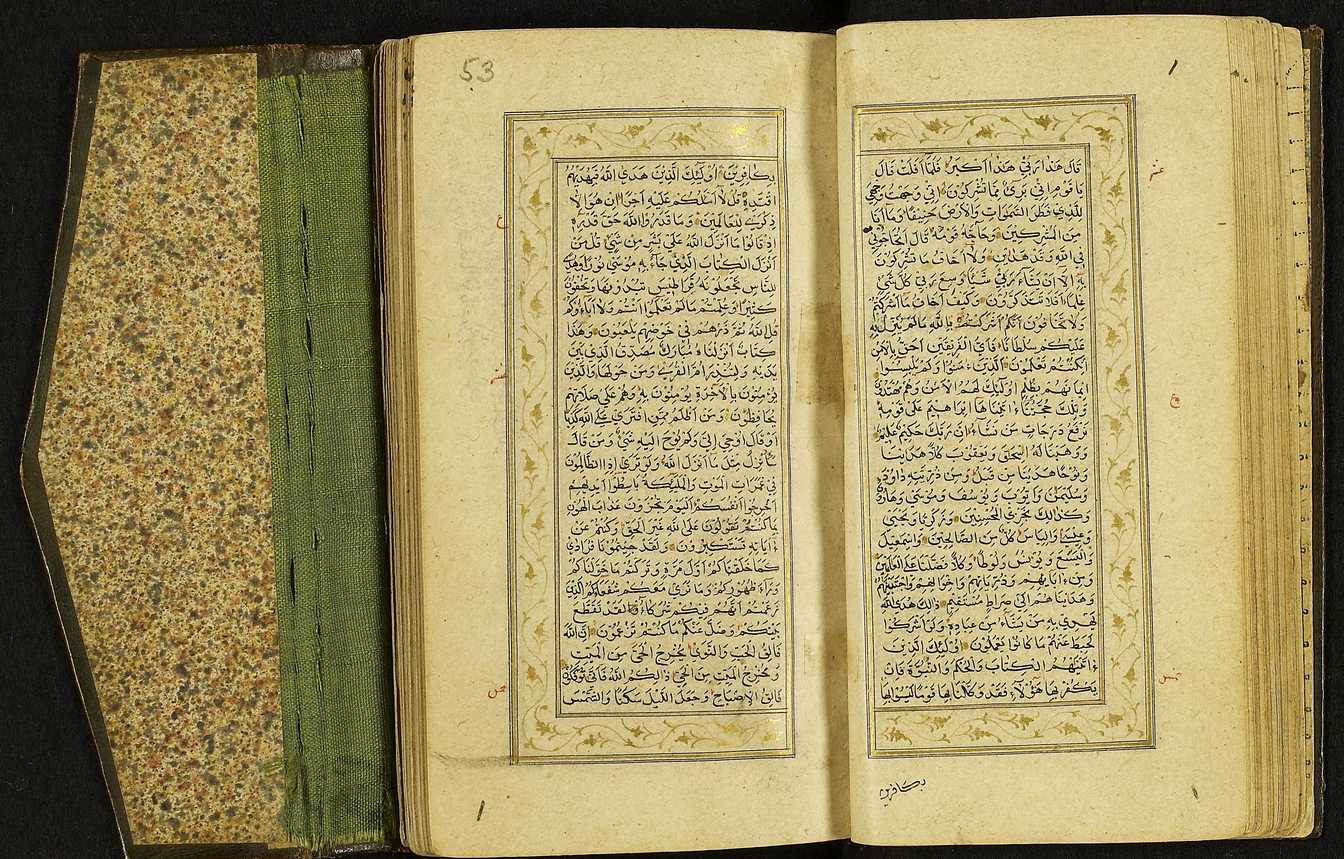 قَالَ هَذَا رَبِّي هَذَا أَكْبَرُ فَلَمَّا أَفَلَتْ قَالَ
يَا قَوْمِ إِنِّي بَرِيءٌ مِمَّا تُشْرِكُونَ إِنِّي وَجَّهْتُ وَجْهِيَ
لِلَّذِي فَطَرَ السَّمَوَاتِ وَالْأَرْضَ حَنِيفًا وَمَا أَنَا
مِنَ الْمُشْرِكِينَ وَحَاجَّهُ قَوْمُهُ قَالَ أَتُحَاجُّونِّي
فِي اللَّهِ وَقَدْ هَدَانِ وَلَا أَخَافُ مَا تُشْرِكُونَ
بِهِ إِلَّا أَنْ يَشَاءَ رَبِّي شَيْئًا وَسِعَ رَبِّي كُلَّ شَيْءٍ
عِلْمًا أَفَلَا تَتَذَكَّرُونَ وَكَيْفَ أَخَافُ مَا أَشْرَكْتُمْ
وَلَا تَخَافُونَ أَنَّكُمْ أَشْرَكْتُمْ بِاللَّهِ مَا لَمْ يُنَزِّلْ بِهِ
عَلَيْكُمْ سُلْطَانًا فَأَيُّ الْفَرِيقَيْنِ أَحَقُّ بِالْأَمْنِ
إِنْ كُنْتُمْ تَعْلَمُونَ الَّذِينَ ءَامَنُوا وَلَمْ يَلْبِسُوا
إِيمَانَهُمْ بِظُلْمٍ أُولَئِكَ لَهُمُ الْأَمْنُ وَهُمْ مُهْتَدُونَ
وَتِلْكَ حُجَّتُنَا ءَاتَيْنَاهَا إِبْرَاهِيمَ عَلَى قَوْمِهِ
نَرْفَعُ دَرَجَاتٍ مَنْ نَشَاءُ إِنَّ رَبَّكَ حَكِيمٌ عَلِيمٌ
وَوَهَبْنَا لَهُ إِسْحَقَ وَيَعْقُوبَ كُلًّا هَدَيْنَا
وَنُوحًا هَدَيْنَا مِنْ قَبْلُ وَمِنْ ذُرِّيَّتِهِ دَاوُدَ
وَسُلَيْمَنَ وَأَيُّوبَ وَيُوسُفَ وَمُوسَى وَهَارُونَ
وَكَذَالِكَ نَجْزِي الْمُحْسِنِينَ وَزَكَرِيَّا وَيَحْيَى
وَعِيسَى وَإِلْيَاسَ كُلٌّ مِنَ الصَّالِحِينَ وَإِسْمَعِيلَ
وَالْيَسَعَ وَيُونُسَ وَلُوطًا وَكُلًّا فَضَّلْنَا عَلَى الْعَالَمِينَ
وَمِنْ ءَابَائِهِمْ وَذُرِّيَّاتِهِمْ وَإِخْوَانِهِمْ وَاجْتَبَيْنَاهُمْ
وَهَدَيْنَاهُمْ إِلَى صِرَاطٍ مُسْتَقِيمٍ ذَالِكَ هُدَى اللَّهِ
يَهْدِي بِهِ مَنْ يَشَاءُ مِنْ عِبَادِهِ وَلَوْ أَشْرَكُوا
لَحَبِطَ عَنْهُمْ مَا كَانُوا يَعْمَلُونَ أُولَئِكَ الَّذِينَ
ءَاتَيْنَهُمُ الْكِتَابَ وَالْحُكْمَ وَالنُّبُوَّةَ فَإِنْ
يَكْفُرْ بِهَا هَؤُلَاءِ فَقَدْ وَكَّلْنَا بِهَا قَوْمًا لَيْسُوا بِهَا
بكافرين
53
بِكَافِرِينَ أُولَئِكَ الَّذِينَ هَدَى اللَّهُ فَبِهُدَيهُمُ
اقْتَدِهْ قُلْ لَا أَسْأَلُكُمْ عَلَيْهِ أَجْرًا إِنْ هُوَ إِلَّا
ذِكْرَى لِلْعَالَمِينَ وَمَا قَدَرُوا اللَّهَ حَقَّ قَدْرِهِ
إِذْ قَالُوا مَا أَنْزَلَ اللَّهُ عَلَى بَشَرٍ مِنْ شَيْءٍ قُلْ مَنْ
أَنْزَلَ الْكِتَابَ الَّذِي جَاءَ بِهِ مُوسَى نُورًا وَهُدًى
لِلنَّاسِ تَجْعَلُونَهُ قَرَاطِيسَ تُبْدُونَهَا وَتُخْفُونَ
كَثِيرًا وَعُلِّمْتُمْ مَا لَمْ تَعْلَمُوا أَنْتُمْ وَلَا ءَابَاؤُكُمْ
قُلِ اللَّهُ ثُمَّ ذَرْهُمْ فِي خَوْضِهِمْ يَلْعَبُونَ وَهَذَا
كِتَابٌ أَنْزَلْنَاهُ مُبَارَكٌ مُصَدِّقُ الَّذِي بَيْنَ
يَدَيْهِ وَلِتُنْذِرَ أُمَّ الْقُرَى وَمَنْ حَوْلَهَا وَالَّذِينَ
يُؤْمِنُونَ بِالْآخِرَةِ يُؤْمِنُونَ بِهِ وَهُمْ عَلَى صَلَاتِهِمْ
يُحَافِظُونَ وَمَنْ أَظْلَمُ مِمَّنِ افْتَرَى عَلَى اللَّهِ كَذِبًا
أَوْ قَالَ أُوحِيَ إِلَيَّ وَلَمْ يُوحَ إِلَيْهِ شَيْءٌ وَمَنْ قَالَ
سَأُنْزِلُ مِثْلَ مَا أَنْزَلَ اللَّهُ وَلَوْ تَرَى إِذِ الظَّالِمُونَ
فِي غَمَرَاتِ الْمَوْتِ وَالْمَلَئِكَةُ بَاسِطُوا أَيْدِيهِمْ
أَخْرِجُوا أَنْفُسَكُمُ الْيَوْمَ تُجْزَوْنَ عَذَابَ الْهُونِ
بِمَا كُنْتُمْ تَقُولُونَ عَلَى اللَّهِ غَيْرَ الْحَقِّ وَكُنْتُمْ عَنْ
ءَايَاتِهِ تَسْتَكْبِرُونَ وَلَقَدْ جِئْتُمُونَا فُرَادَى
كَمَا خَلَقْنَاكُمْ أَوَّلَ مَرَّةٍ وَتَرَكْتُمْ مَا خَوَّلْنَاكُمْ
وَرَاءَ ظُهُورِكُمْ وَمَا نَرَى مَعَكُمْ شُفَعَاءَكُمُ الَّذِينَ
زَعَمْتُمْ أَنَّهُمْ فِيكُمْ شُرَكَاءُ لَقَدْ تَقَطَّعَ
بَيْنَكُمْ وَضَلَّ عَنْكُمْ مَا كُنْتُمْ تَزْعُمُونَ إِنَّ اللَّهَ
فَالِقُ الْحَبِّ وَالنَّوَى يُخْرِجُ الْحَيَّ مِنَ الْمَيِّتِ
وَمُخْرِجُ الْمَيِّتِ مِنَ الْحَيِّ ذَالِكُمُ اللَّهُ فَأَنَّى تُؤْفَكُونَ
فَالِقُ الْإِصْبَاحِ وَجَعَلَ اللَّيْلَ سَكَنًا وَالشَّمْسَ